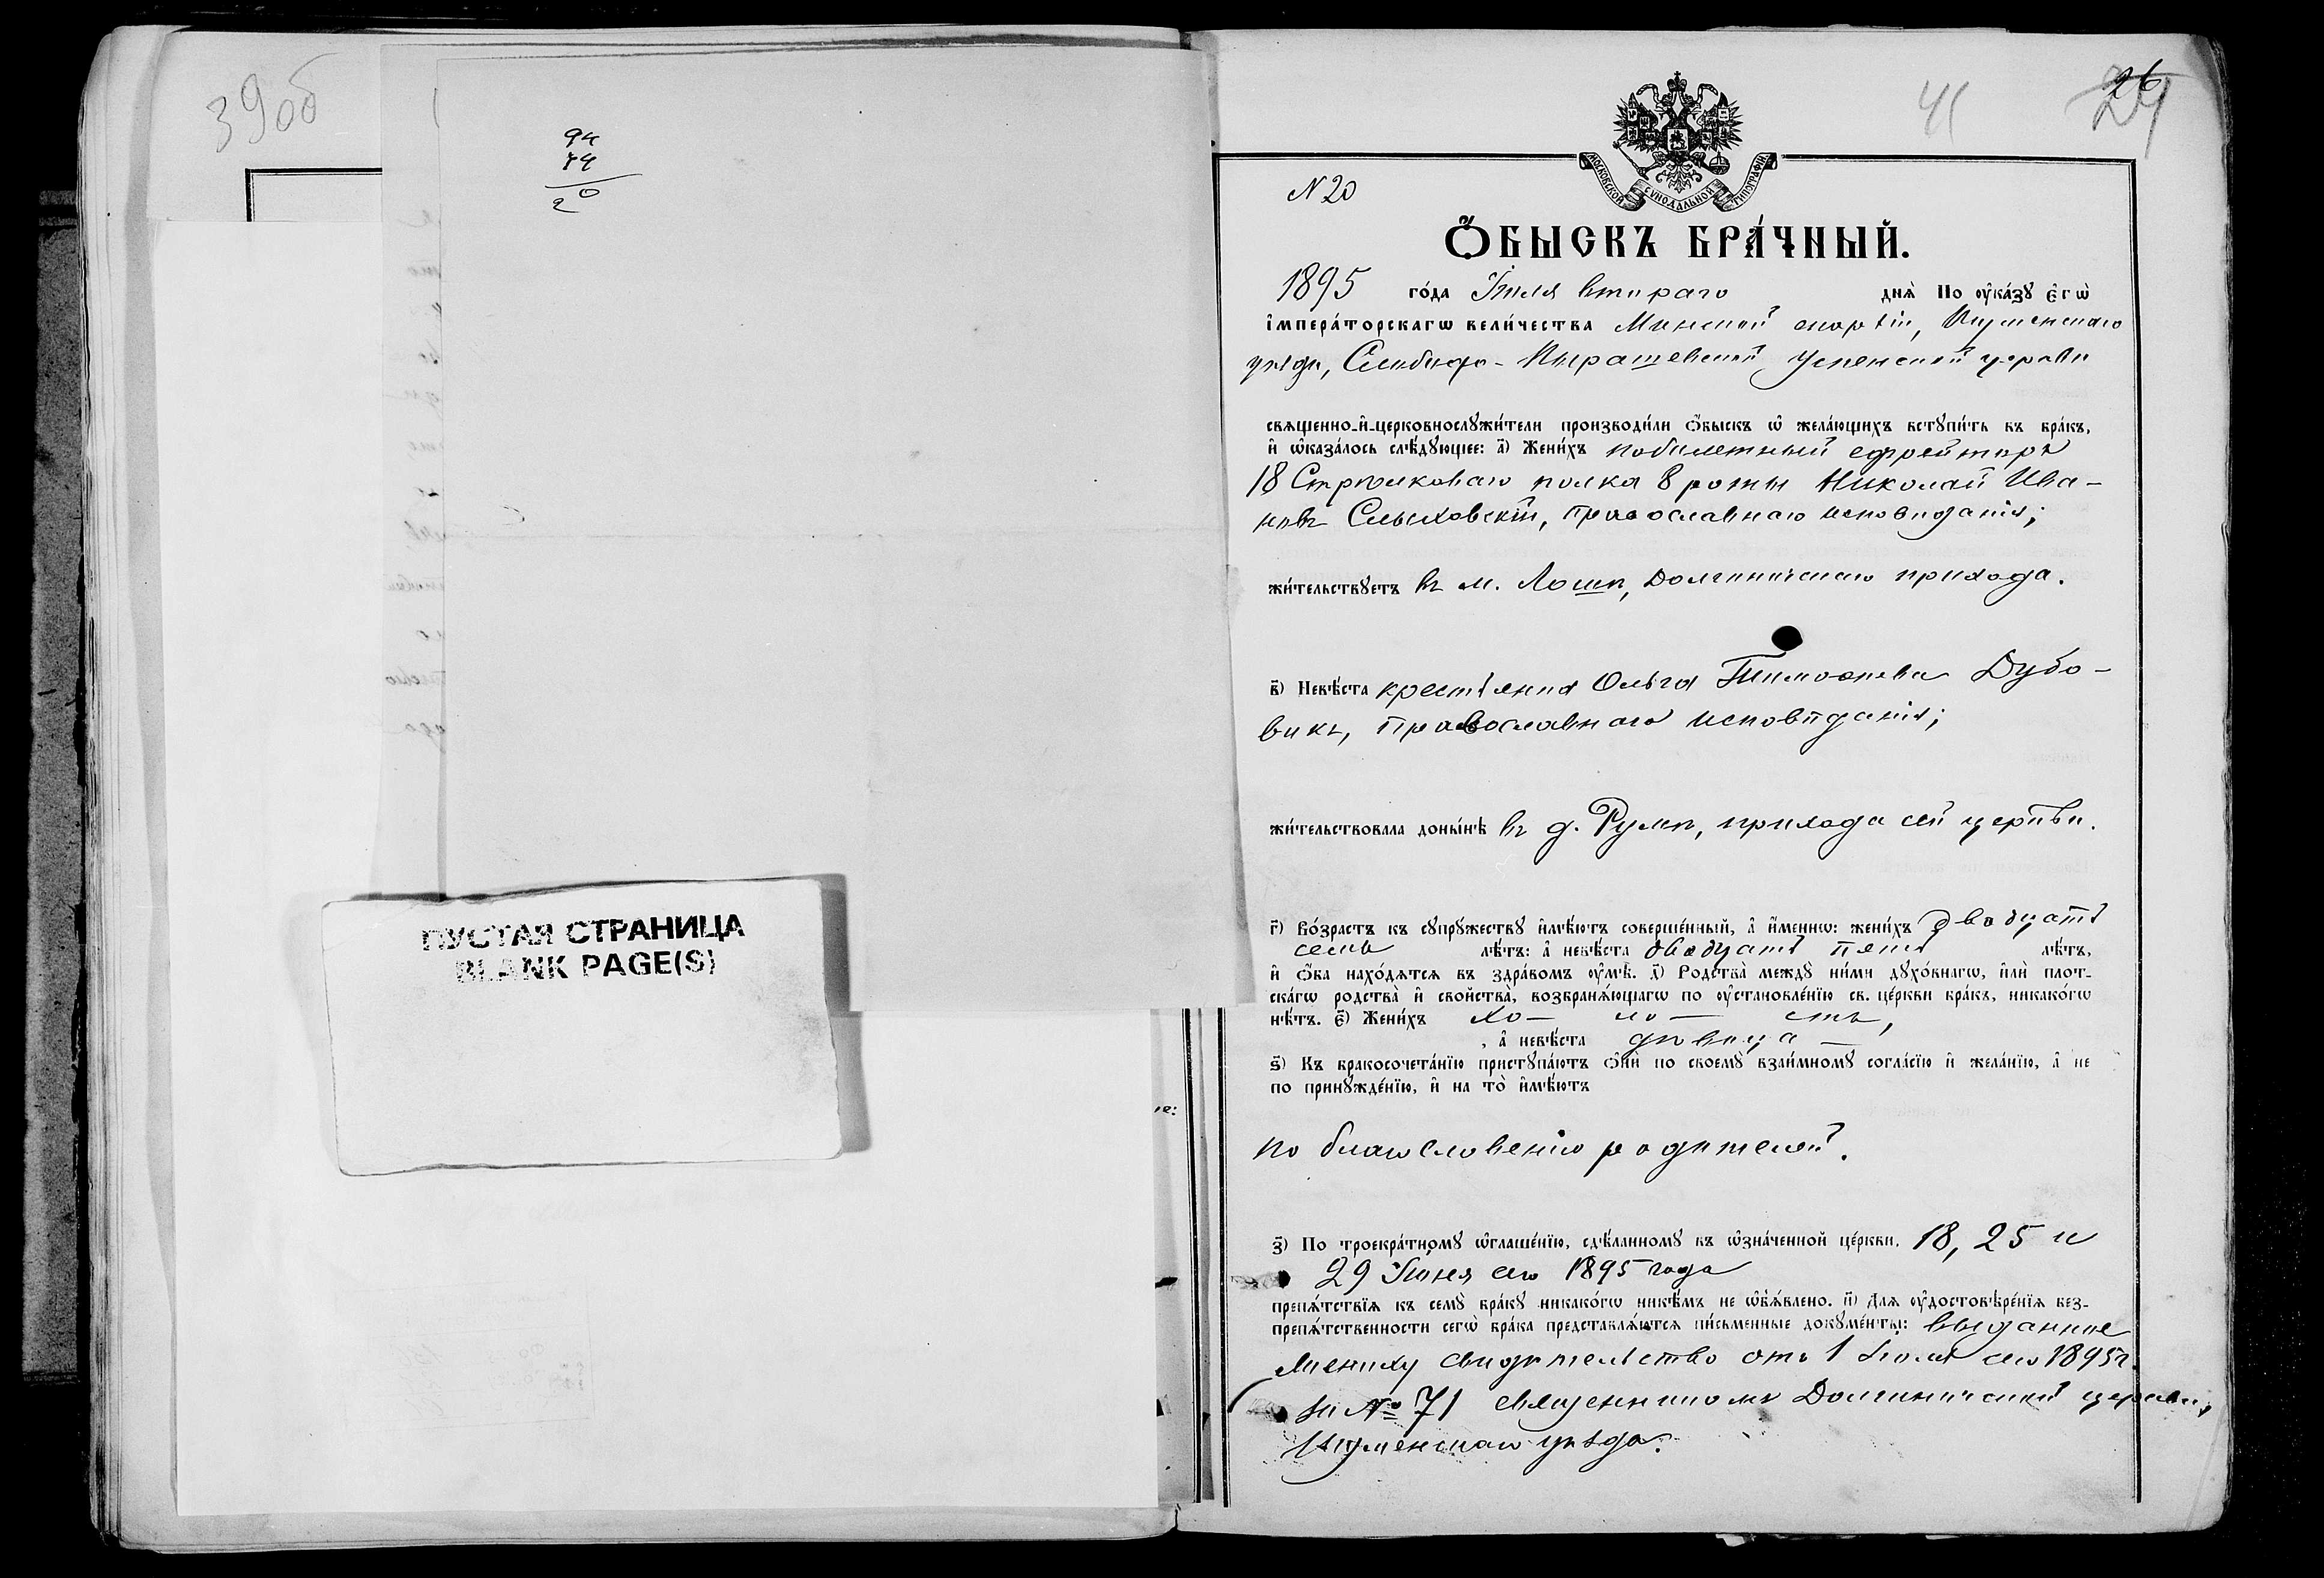 39об
94
74
20
ПУСТАЯ СТРАНИЦА
BLANK PAGE(S)
41
26
МОСКОВСКОЙ СѴНОДАЛЬНОЙ ТИПОГРАФІИ
N 20
Ѻ҆БЫСКЪ БРА́ЧНЫЙ.
1895 го́да Іюля втораго днѧ̀ По ᲂу҆ка́зꙋ є҆гѡ̀
і҆мпера́торскагѡ вели́чества Минской епархіи, Игуменскаго
уѣзда, Слободо-Пырашевской Успенской церкви
свѧщенно-и҆-церковнослꙋжи́тели производи́ли ѻ҆́быскъ ѡ҆ жела́ющихъ встꙋпи́ть въ бра́къ,
и҆ ѡ҆каза́лось слѣ́дꙋющее: а҃) Жени́хъ побилетный ефрейторъ
18 Стрѣлковаго полка 8 роты Николай Ива-
новъ Слыховскій, православнаго исповѣданія;
жи́тельствꙋетъ въ м. Лошѣ, Долгиничскаго прихода.
в҃) Невѣ́ста крестьянка Ольга Тимоѳеева Дубо-
викъ, православнаго исповѣданія;
жи́тельствовала доны́нѣ въ д. Румѣ, прихода сей церкви.
г҃) Во́зрастъ къ сꙋпрꙋ́жествꙋ и҆мѣ́ютъ соверше́нный, а҆ и҆́меннѡ: жени́хъ двадцать
семь лѣ́тъ: а҆ невѣ́ста двадцать пять лѣ́тъ,
и҆ ѻ҆́ба нахо́дѧтсѧ въ здра́вомъ ᲂу҆мѣ̀. д҃) Родства̀ междꙋ̀ ни́ми дꙋхо́внагѡ, и҆лѝ плот-
ска́гѡ родства̀ и҆ свойства̀, возбранѧ́ющагѡ по ᲂу҆становле́нїю св. це́ркви бра́къ, никако́гѡ
нѣ́тъ. є҃) Жени́хъ хо- ло- стъ,
, а҆ невѣ́ста дѣвица —
ѕ҃) Къ бракосочета́нїю пристꙋпа́ютъ ѻ҆нѝ по своемꙋ̀ взаи́мномꙋ согла́сїю и҆ жела́нїю, а҆ не
по принꙋжде́нїю, и҆ на то̀ и҆мѣ́ютъ
по благословенію родителей.
з҃) По троекра́тномꙋ ѡ҆глаше́нїю, сдѣ́ланномꙋ въ ѡ҆зна́ченной це́ркви. 18, 25 и
29 Іюня сего 1895 года
препѧ́тствїѧ къ семꙋ̀ бра́кꙋ никако́гѡ никѣ́мъ не ѡ҆б̾ѧ́влено. и҃) Длѧ ᲂу҆достовѣре́нїѧ без-
препѧ́тственности сегѡ̀ бра́ка представлѧ́ютсѧ пи́сьменные докꙋме́нты: выданное
жениху свидѣтельство отъ 1 Іюля сего 1895 г.
за № 71 священникомъ Долгиничской церкви,
Игуменскаго уѣзда.